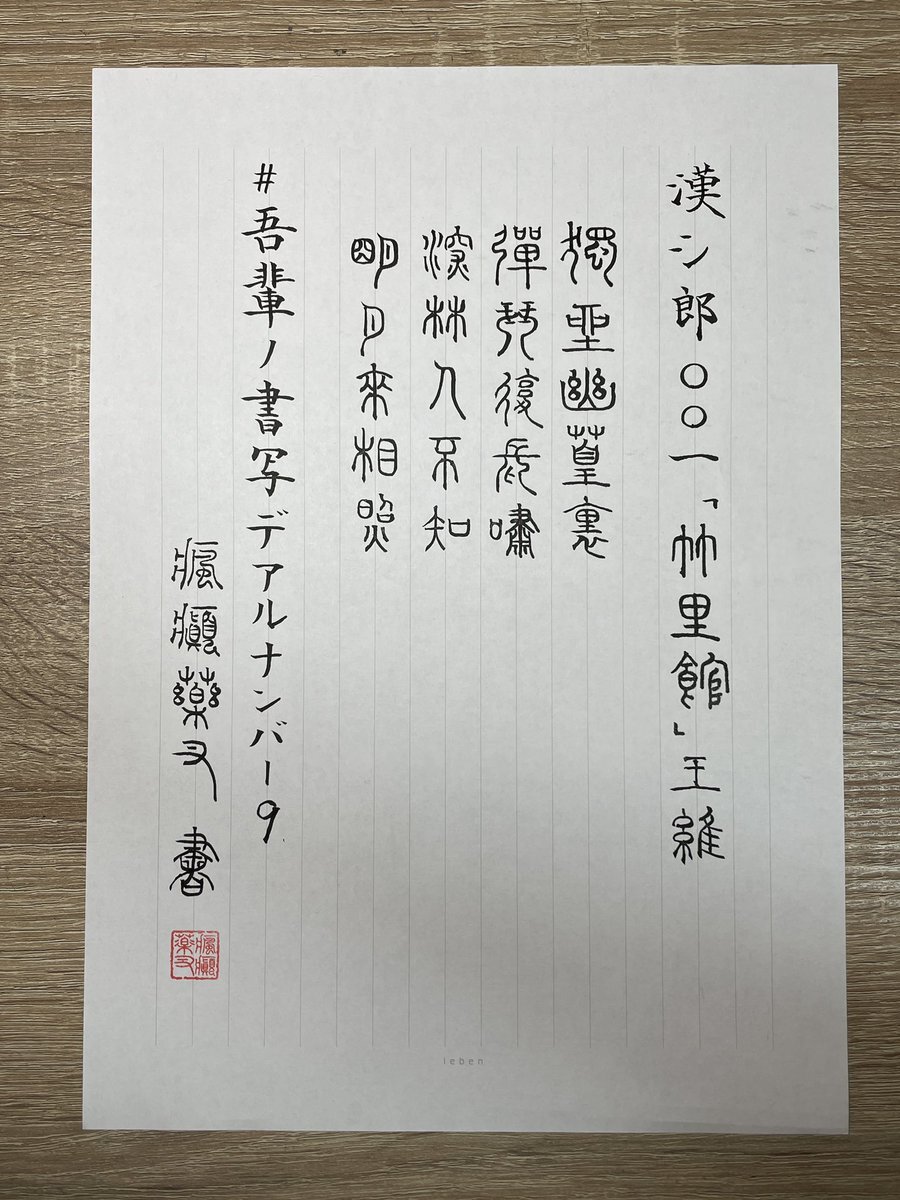 漢シ郎〇〇一「竹里館」王維
獨坐幽篁裏
彈琴復長嘯
深林人不知
明月來相照
#吾輩ノ書写デアルナンバー9
瘋癲藥叉 書
瘋癲
藥叉
leben